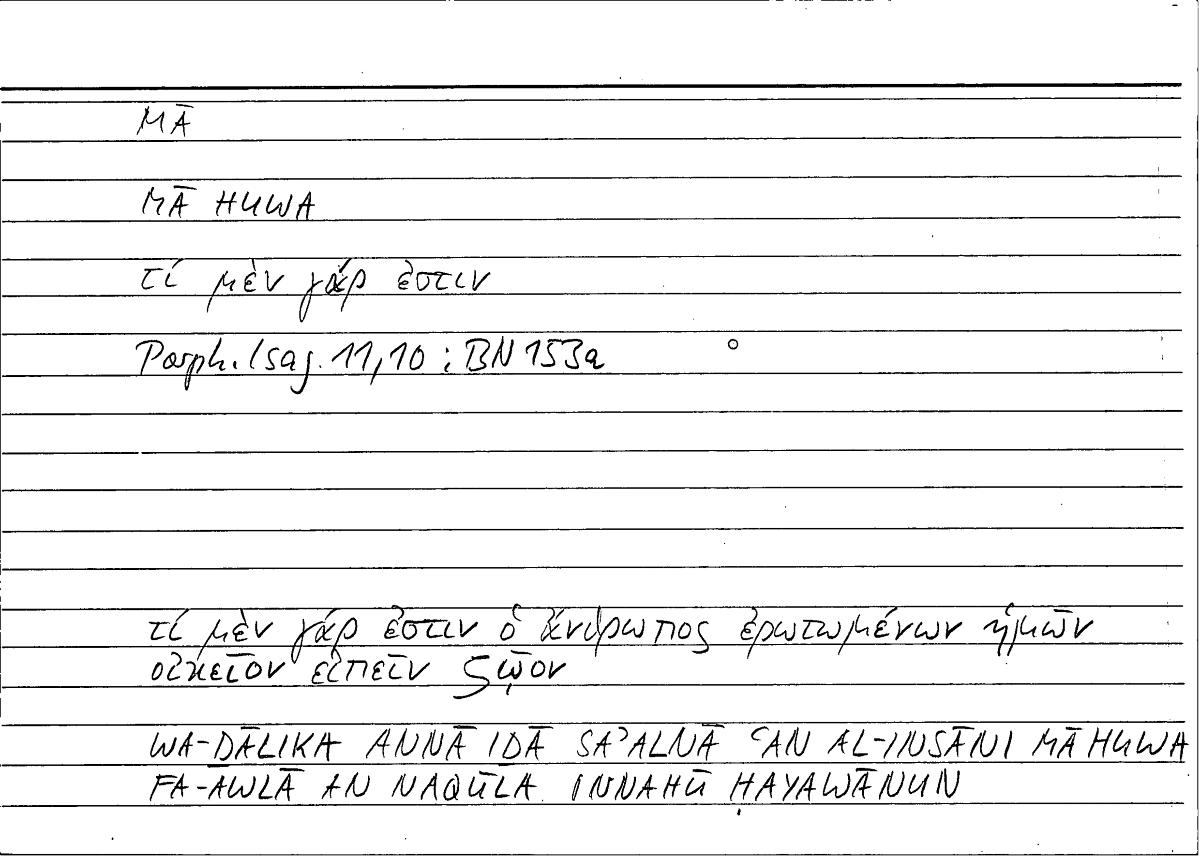 MĀ
MĀ HUWA
τί μὲν γάρ ἐστιν
Porph. Isag. 11,10 ; BN 153a
τί μὲν γάρ ἐστιν ὁ ἄνθρωπος ἐρωτωμένων ἡμῶν
οἰκεῖον εἰπεῖν ζῷον
WA-ḎĀLIKA ANNĀ IḎĀ SAʾALNĀ ʿAN AL-INSĀNI MĀ HUWA
FA-AWLĀ AN NAQŪLA INNAHŪ ḤAYAWĀNUN